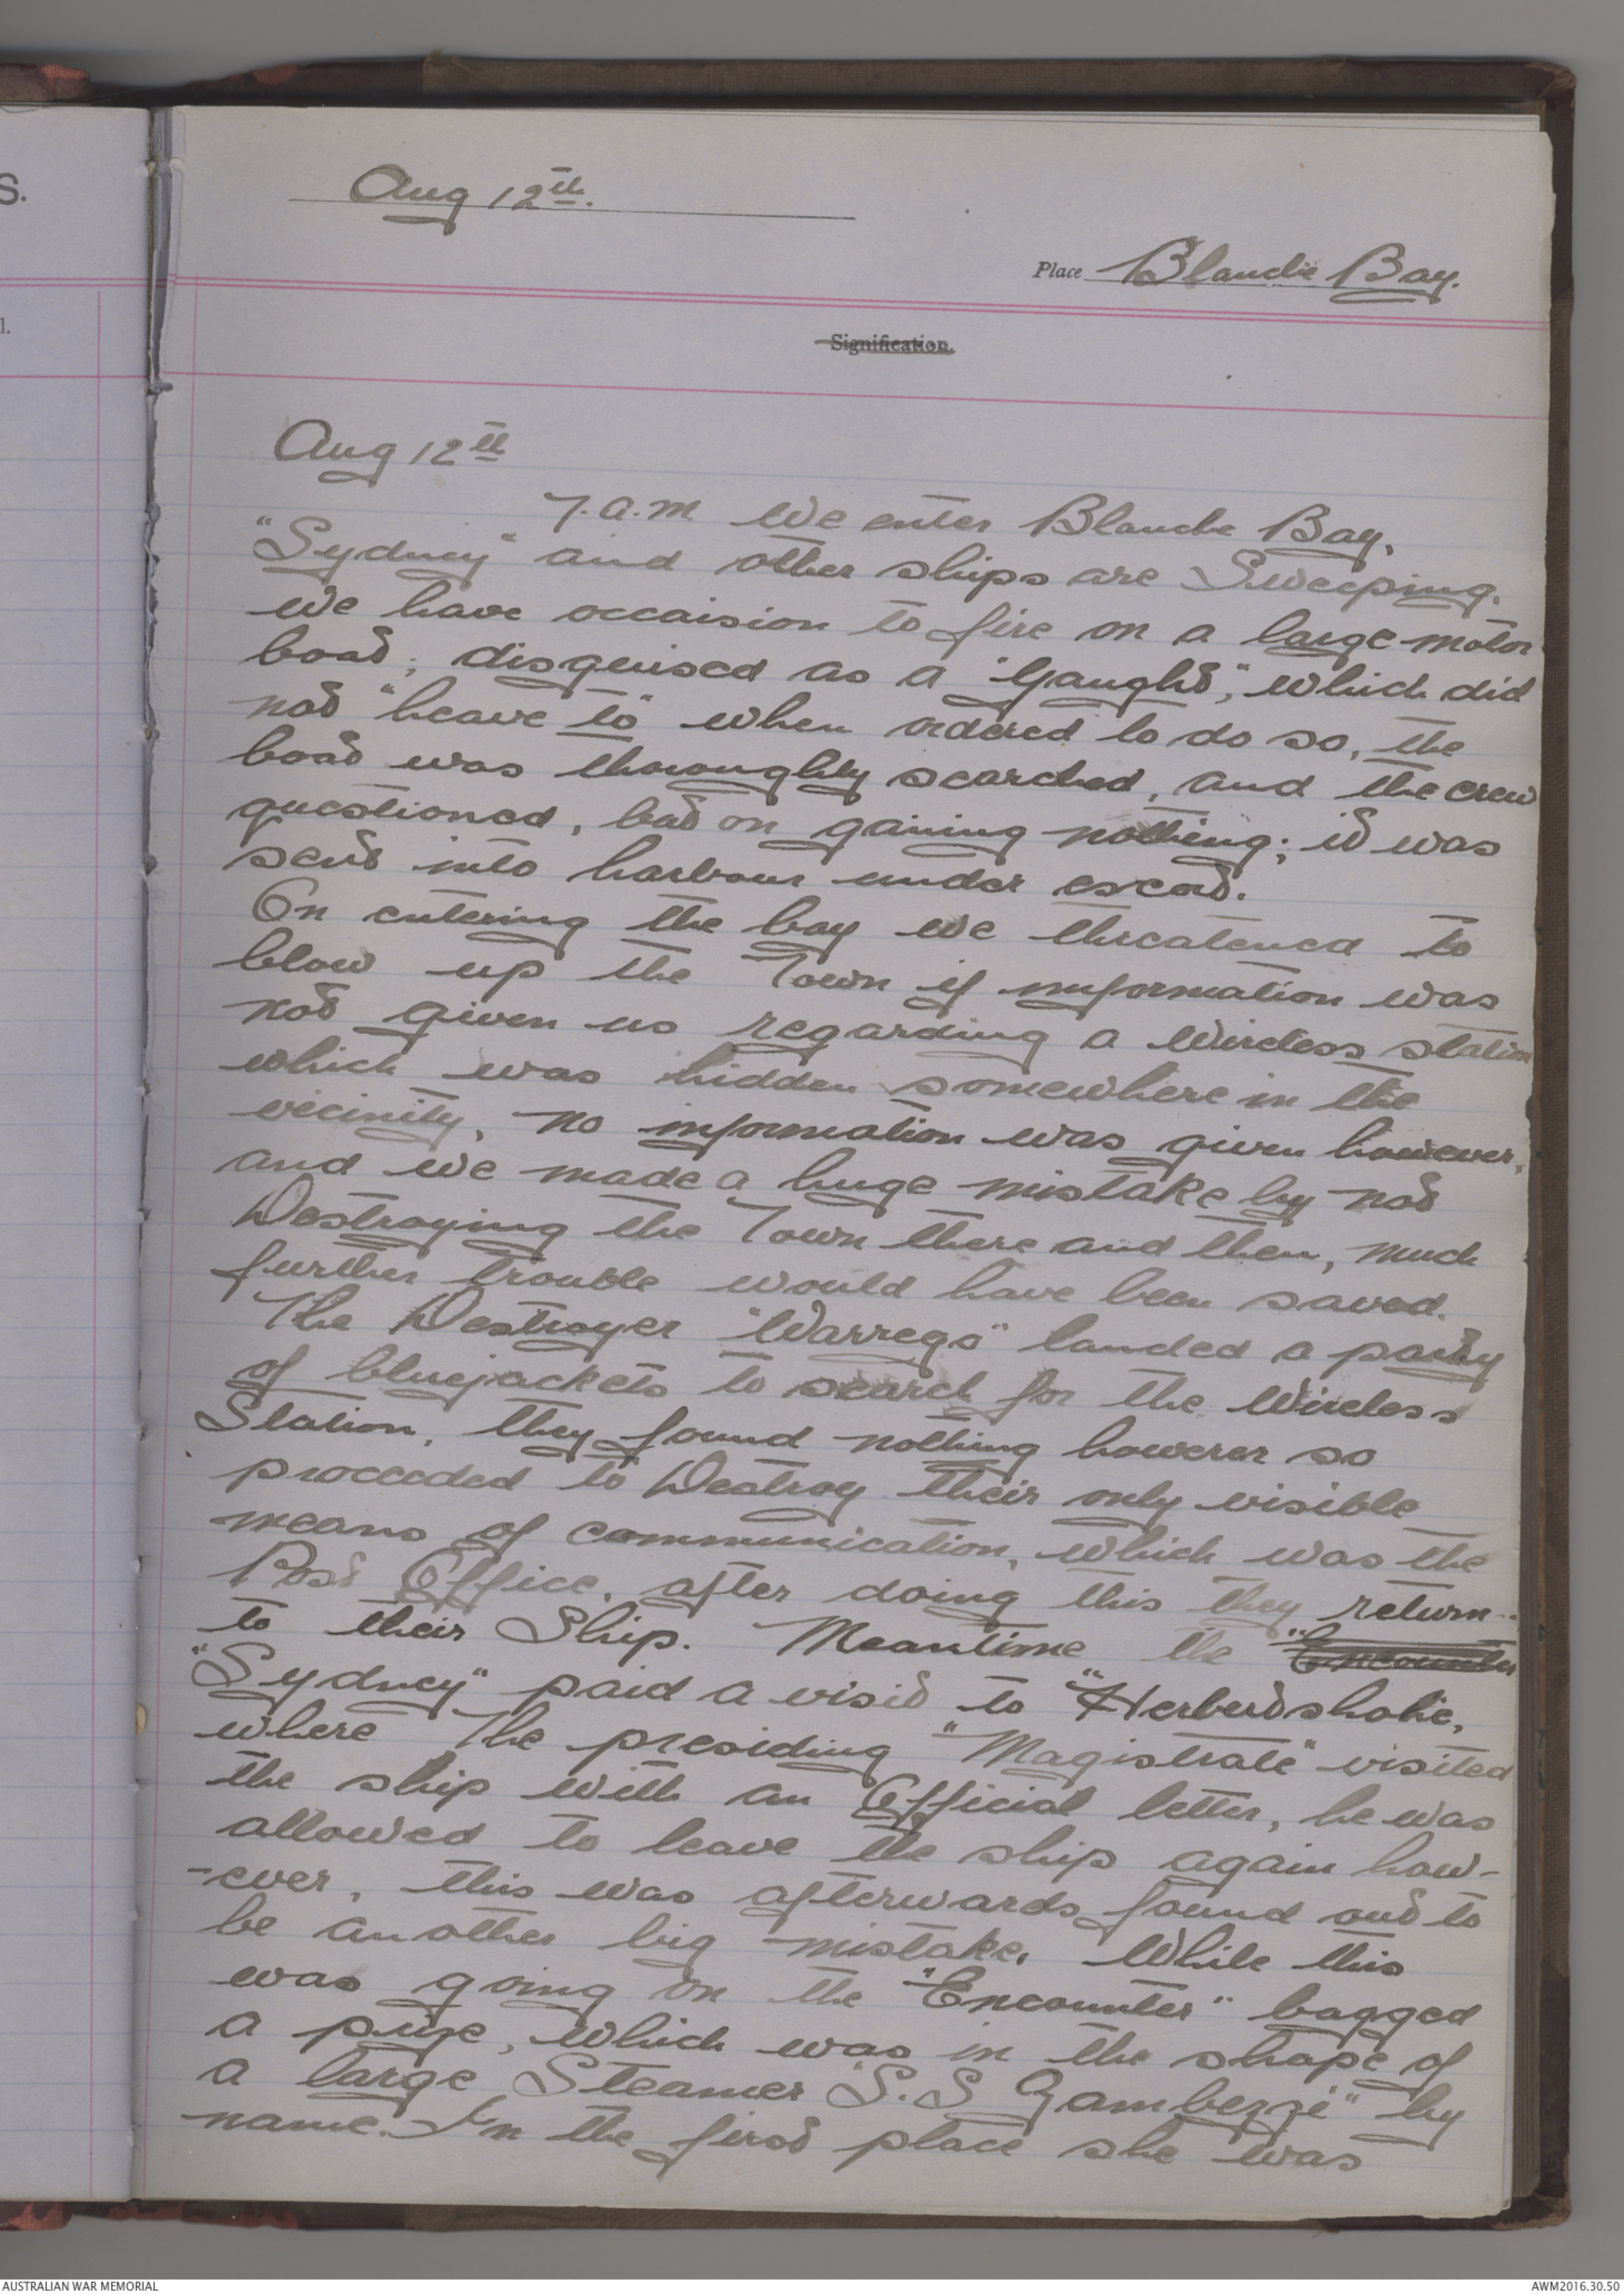 S.
l.
Aug 12th.
Place Blanche Bay.
Signification.
Aug 12th
7.a.m We enter Blanche Bay.
"Sydney" and other ships are Sweeping.
We have occaision to fire on a large motor
boat; disguised as a "Yaught," which did
not "heave to" when ordered to do so, the
boat was thoroughly searched, and the crew
questioned, but on gaining nothing; it was
sent into harbour under escort.
On entering the bay we threatened to
blow up the Town if information was
not given us regarding a Wireless station
which was hidden somewhere in the
vicinity, no information was given however,
and we made a huge mistake by not
Destroying the Town there and then, much
further trouble would have been saved.
The Destroyer "Warrego" landed a party
of bluejackets to search for the Wireless
Station, they found nothing however so
proceeded to Destroy their only visible
means of communication, which was the
Post Office, after doing this they return-
to their Ship. Meantime the "Encounter
"Sydney" paid a visit to "Herbertshohe,
where The presiding "Magistrate" visited
the ship with an Official letter, he was
allowed to leave the ship again how-
-ever, this was afterwards found out to
be another big mistake. While this
was going on the "Encounter" bagged
a prize, which was in the shape of
a large Steamer "S.S Zambezzi" by
name. In the first place she was
AUSTRALIAN WAR MEMORIAL
AWM2016.30.50